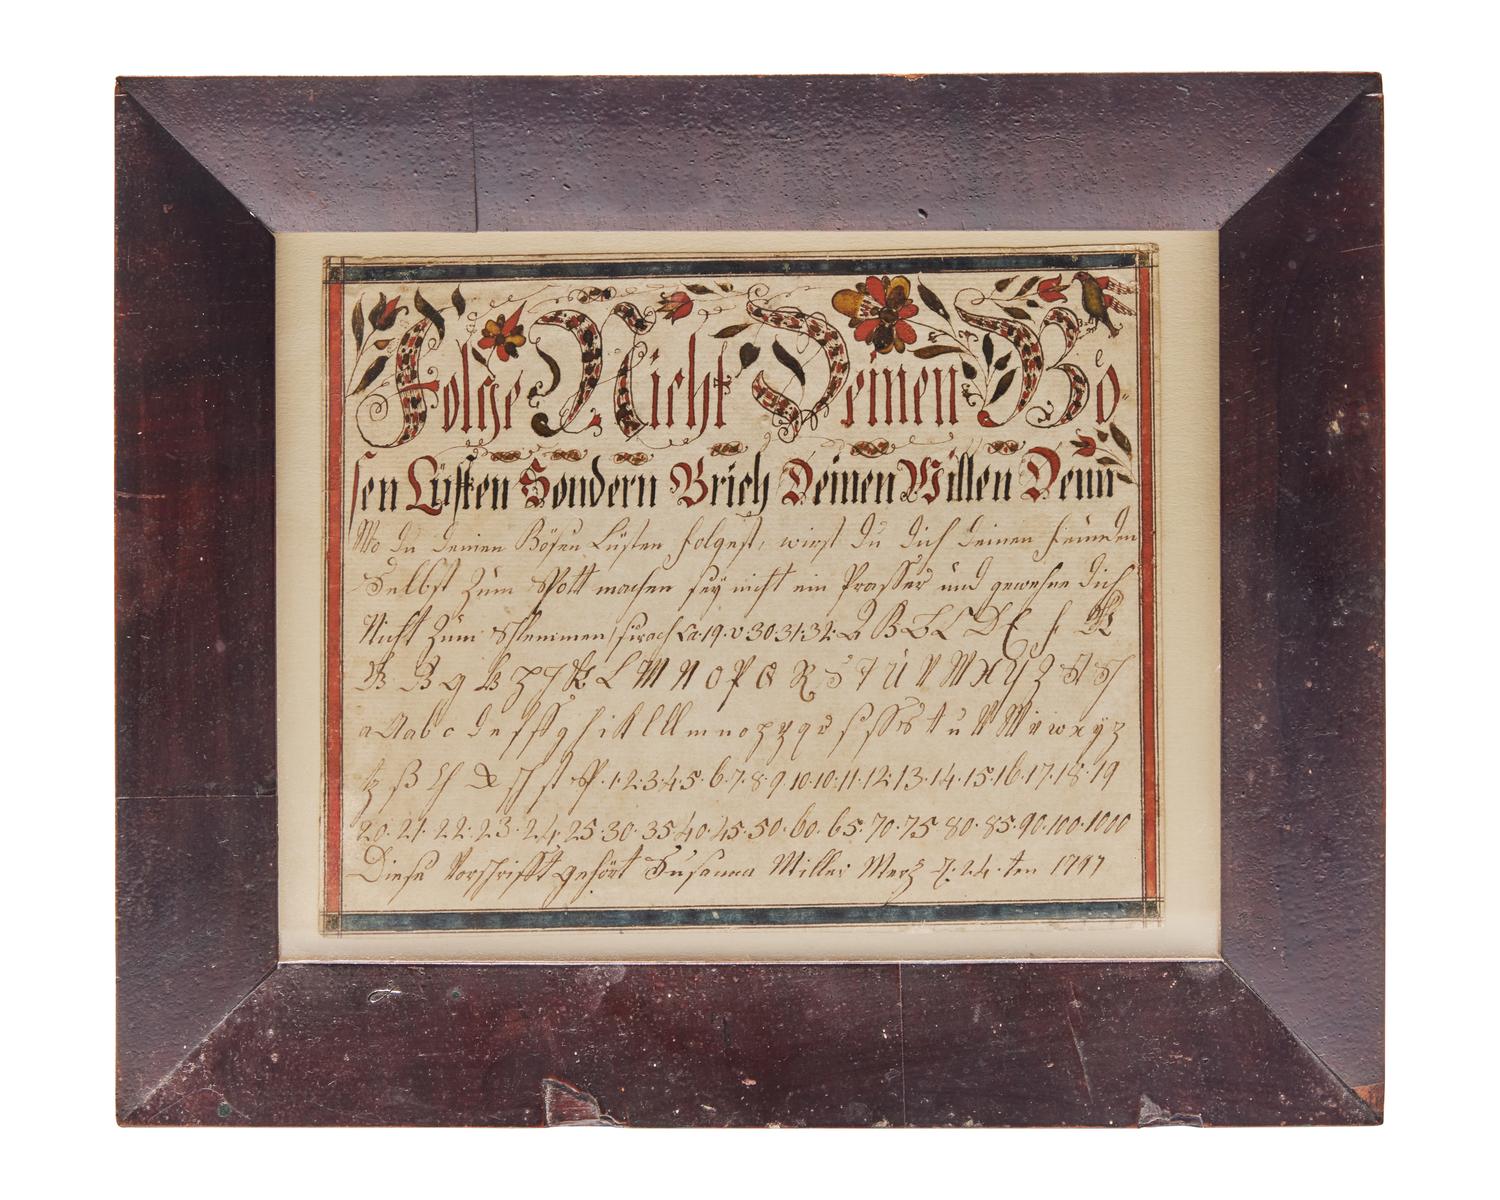 Folge Nicht Deinen Bö-
sen Lüsten Sondern Brich Deinen Willen Denn
Wo du deinen Bösen Lüsten folgest, wirst du dich deinen feinden
Selbst Zum Spott machen sey nicht ein Prasser und gewehne dich
Nicht Zum Schlemmen, sirach Ca. 19. v 30. 31. 32. A B C C D E f
L M N O P Q R S T U V W X Y Z St Sch
a a b c d e f ff g h i k l ll m n o p q r s ß t u v w x y z
tz ß ch sch st Sp. 1. 2. 3. 4. 5. 6. 7. 8. 9. 10. 10. 11. 12. 13. 14. 15. 16. 17. 18. 19
20. 21. 22. 23. 24. 25. 30. 35. 40. 45. 50. 60. 65. 70. 75. 80. 85. 90. 100. 1000
Diese Vorschrifft gehört Susanna Miller Merz d. 24. ten 1797